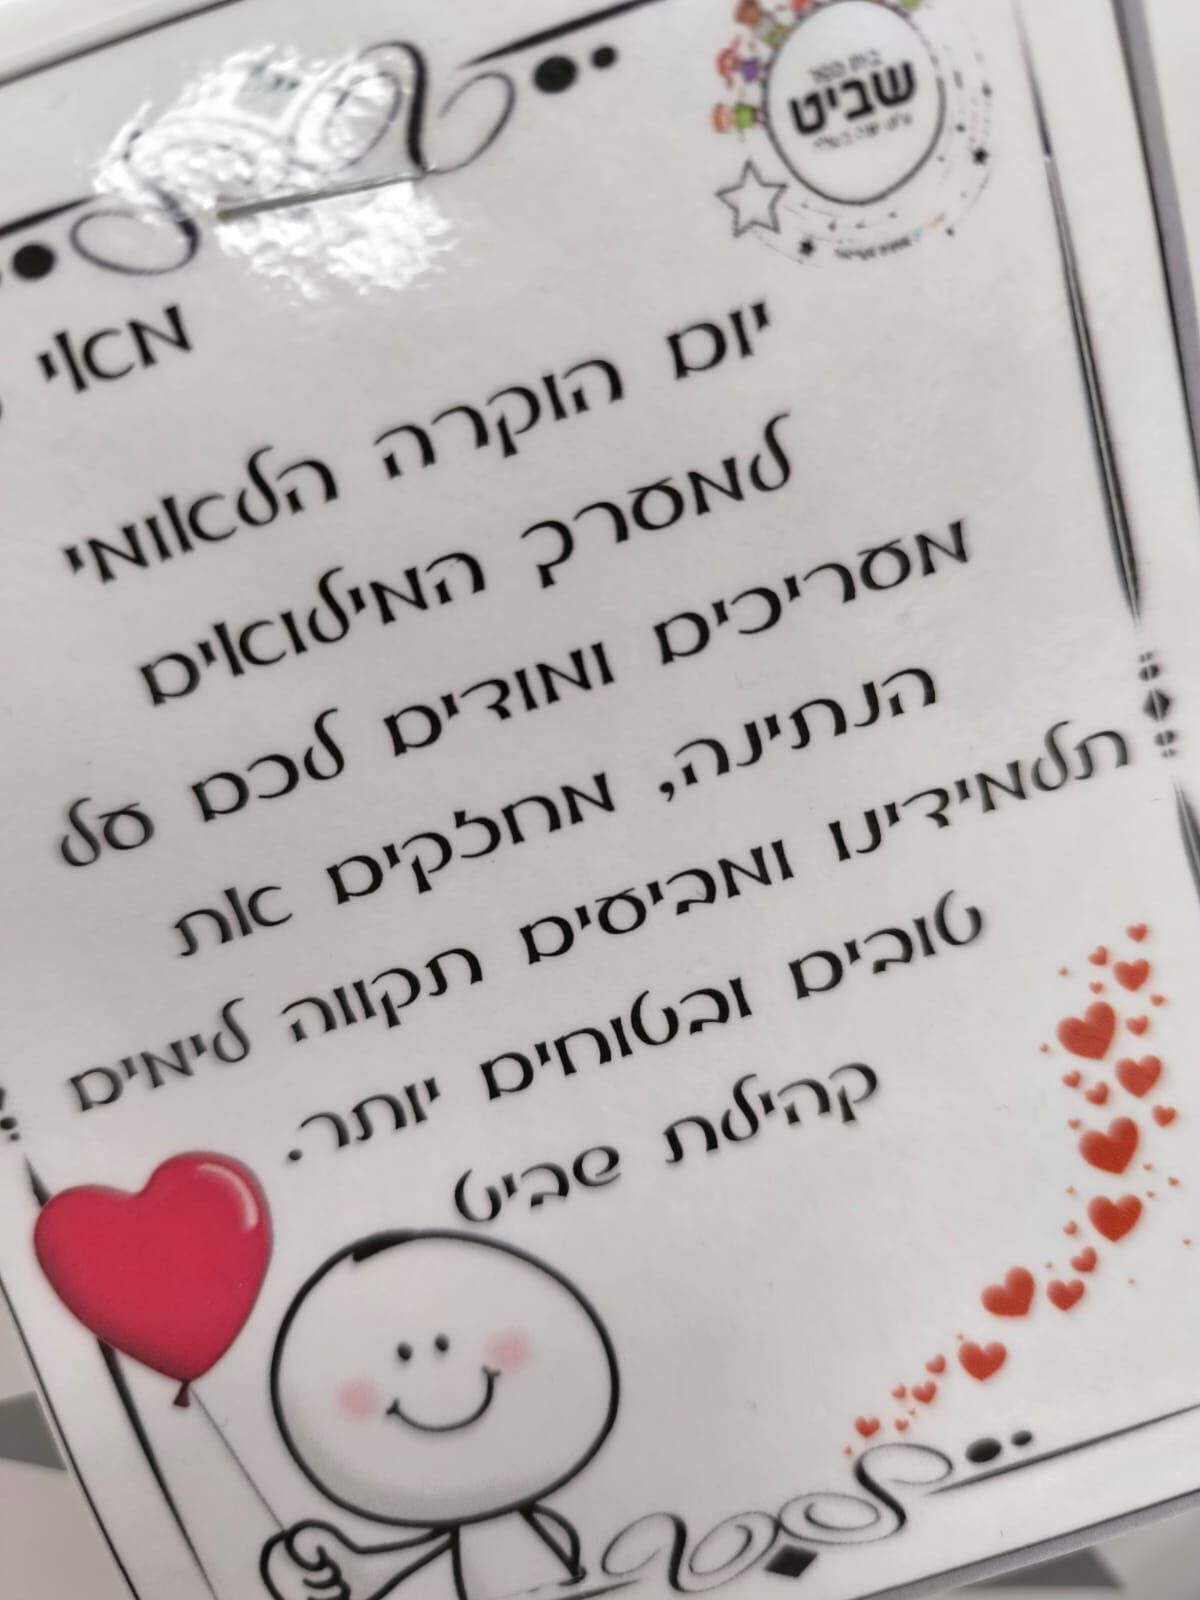 בית ספר
שביט
מאי
יום הוקרה הלאומי
למערך המילואים
מעריכים ומודים לכם על
הנתינה, מחזקים את
תלמידינו ומביעים תקווה לימים
טובים ובטוחים יותר.
קהילת שביט